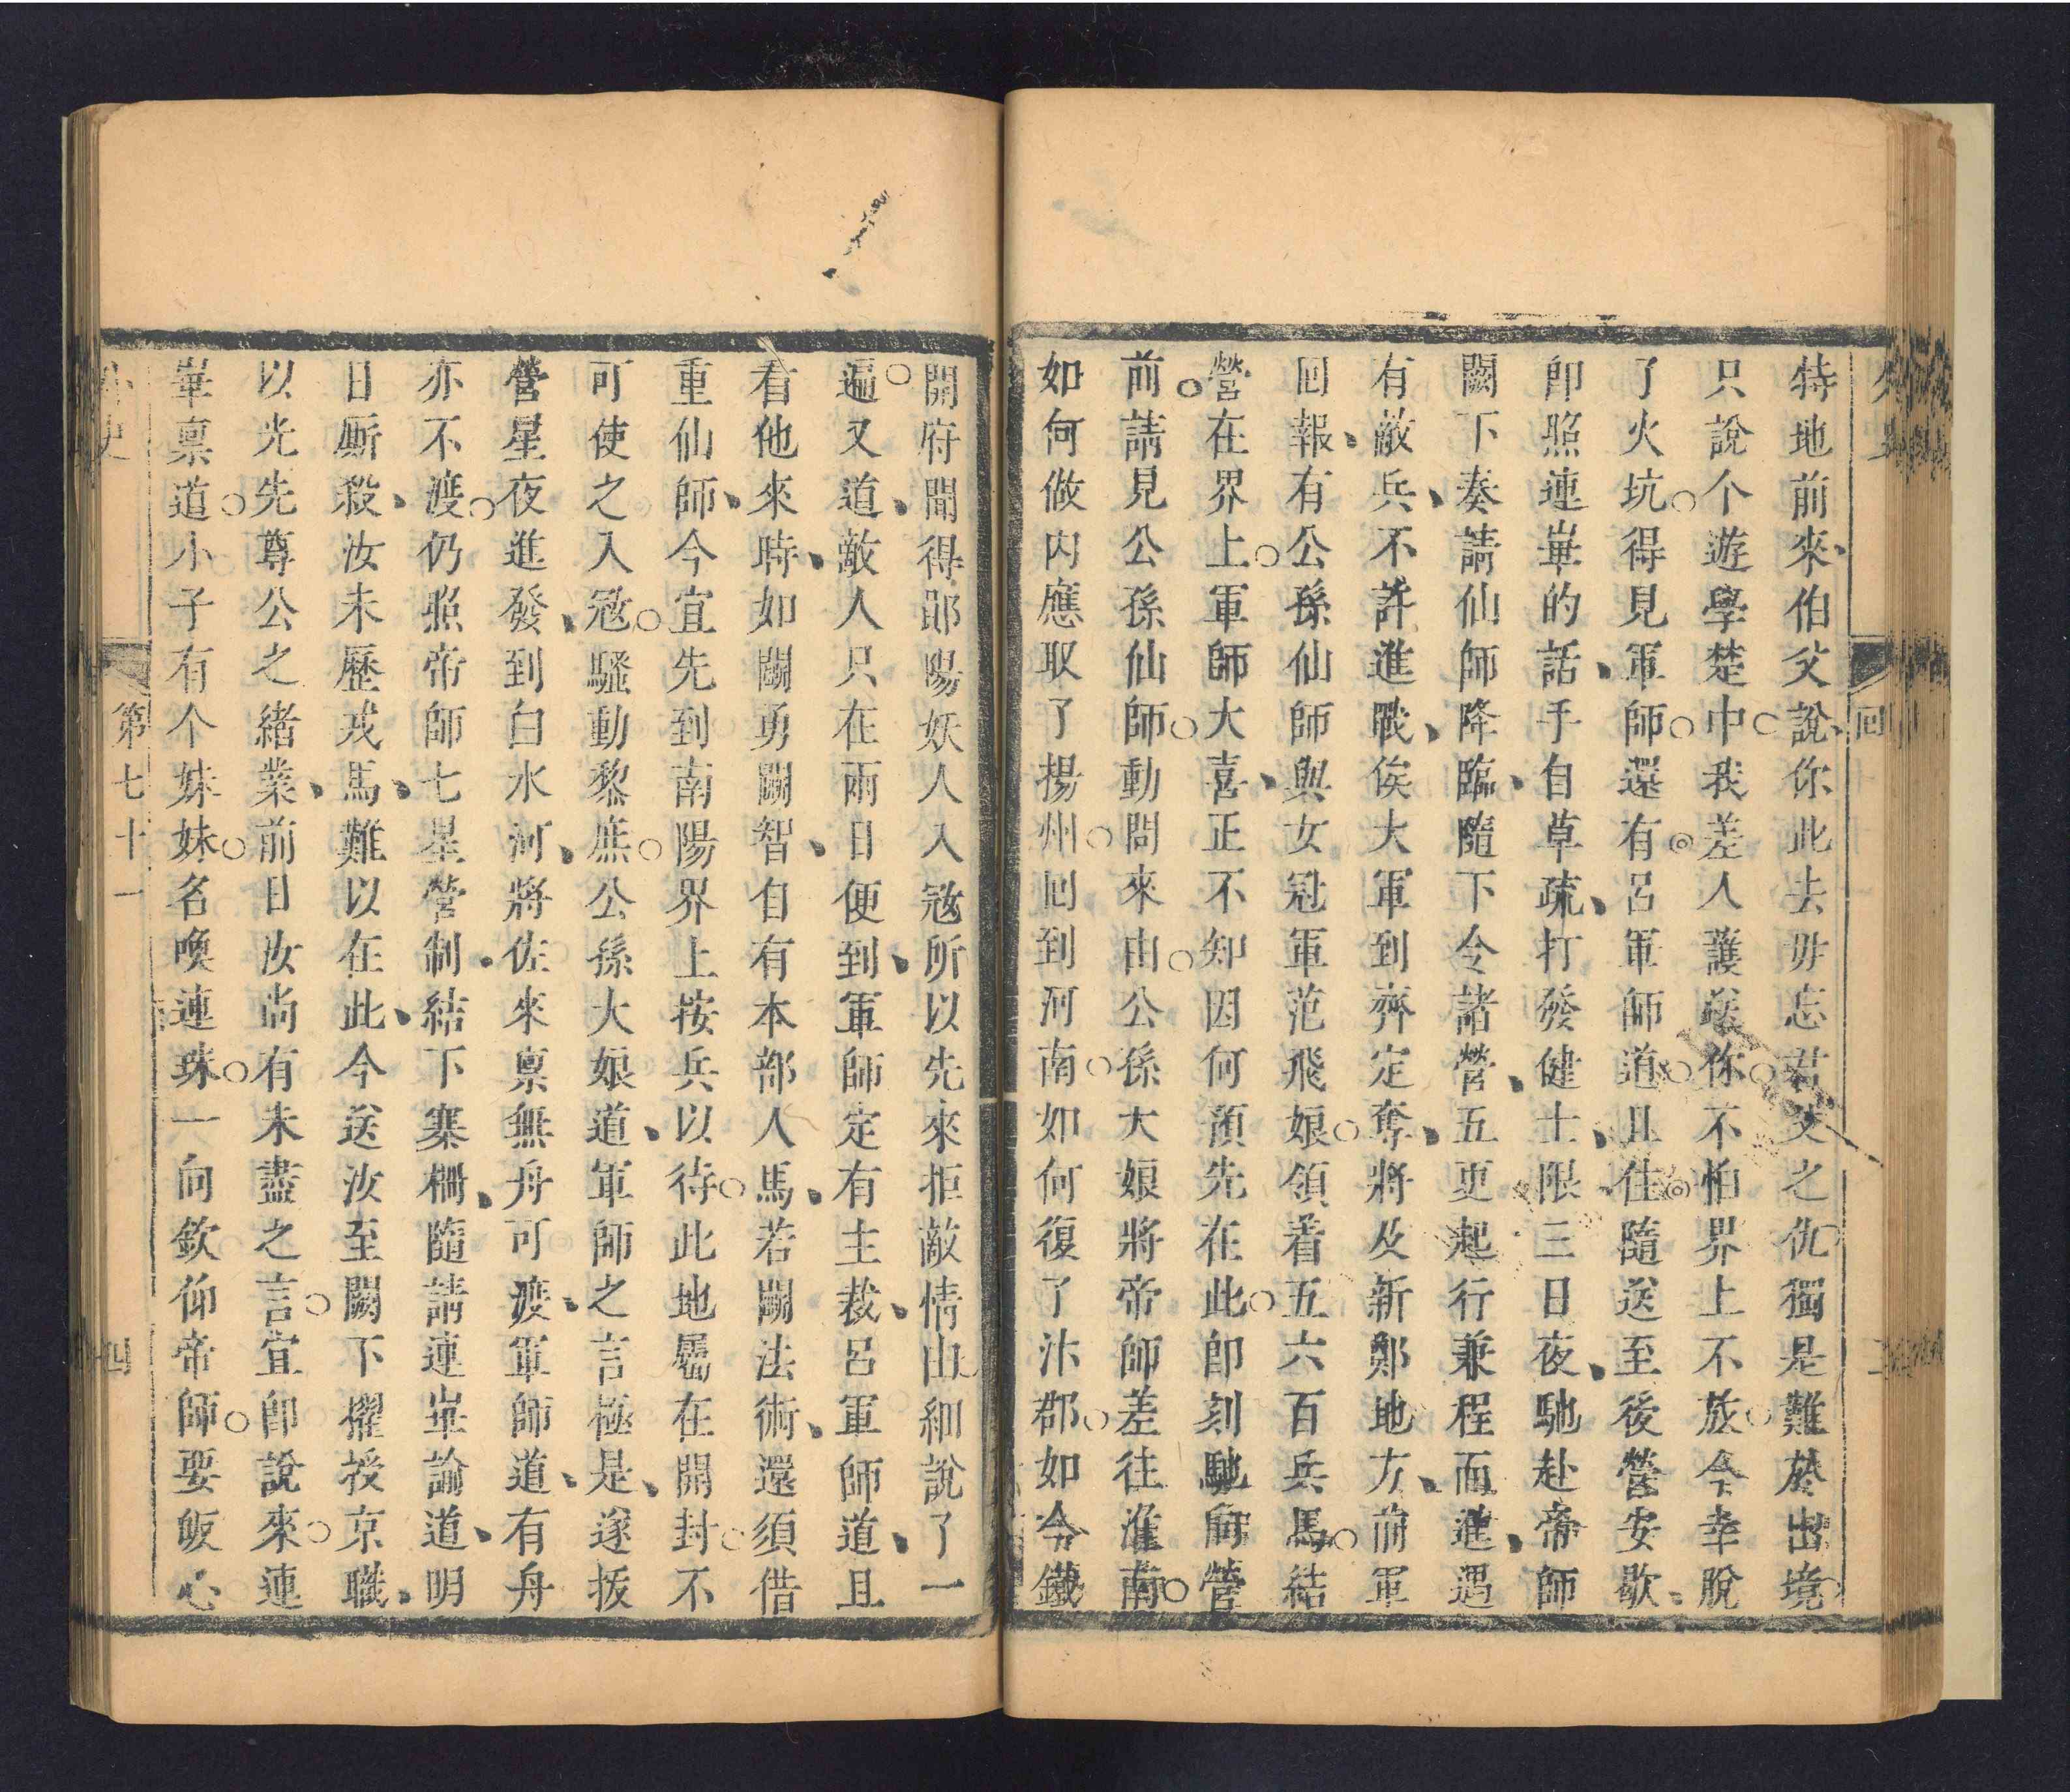 特地前來、伯父說、你此去毋忘君父之仇獨是難於出境
只說个遊學楚中○我差人護送你○不怕界上不放○今幸脫
了火坑○得見軍師○還有◎呂軍師道○且住◎隨送至後營安歇、
即照連華的話、手自草疏、打發健士、限三日夜、馳赴帝師
闕下奏請仙師降臨、隨下令諸營、五更起行兼程而進、遇
有敵兵、不許進戰、俟大軍到齊定奪、將及新鄭地方、前軍
回報、有公孫仙師與女冠軍范飛娘○領着五六百兵馬○結
營在界上○軍師大喜、正不知因何預先在此○即刻馳向營
前○請見公孫仙師○動問來由○公孫大娘將帝師差往淮南○
如何做內應取了揚州○回到河南○如何復了汴郡○如今鐵
開府聞得鄖陽妖人入寇所以先來拒敵情由細說了一
遍○又道、敵人只在兩日便到、軍師定有主裁、呂軍師道、且
看他來時、如鬭勇鬭智、自有本部人馬、若鬭法術、還須借
重仙師、今宜先到南陽界上按兵以待○此地屬在開封○不
可使之入寇○騷動黎庶○公孫大娘道、軍師之言極是、遂拔
營星夜進發、到白水河、將佐來稟無舟可渡、軍師道、有舟
亦不渡○仍照帝師七星營制、結下寨柵、隨請連華諭道、明
日厮殺、汝未歷戎馬、難以在此、今送汝至闕下擢授京職、
以光先尊公之緒業、前日汝尚有未盡之言○宜即說來○連
華稟道○小子有个妹妹○名喚連珠○一向欽仰帝師○要皈心
外史
第七十一
四